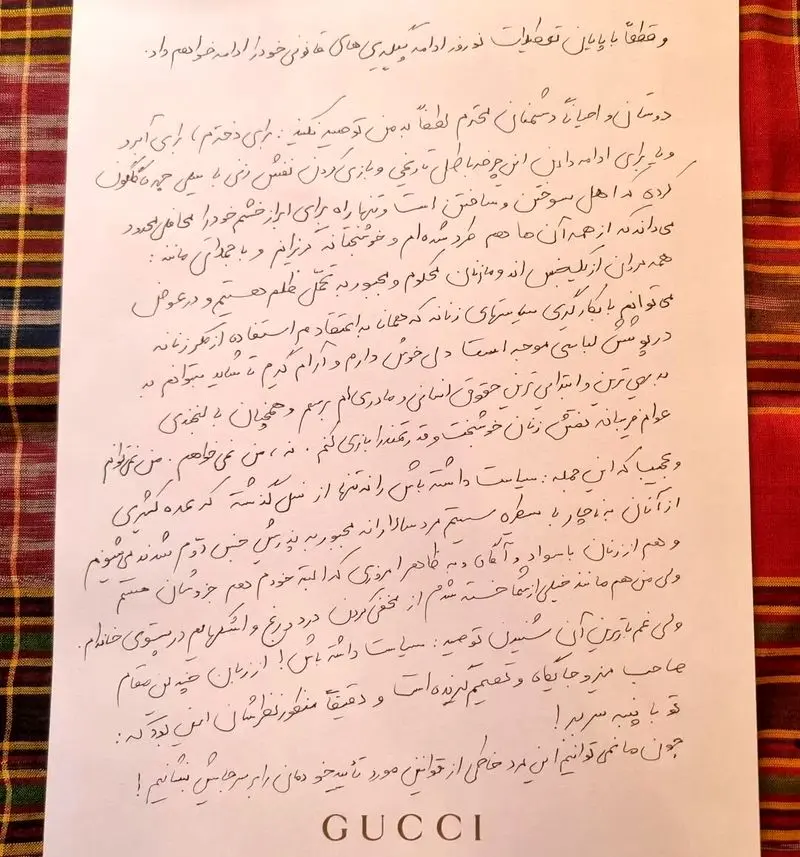 و قطعاً با پایان تعطیلات نوروز ادامه پیگیری های قانونی خود را ادامه خواهم داد.
دوستان و احیاناً دشمنان محترم لطفاً به من توصیه نکنید: برای دخترم، برای آبرو
و یا برای ادامه دادن این چرخه باطل تاریخی و بازی کردن نقش زنی با سیلی چهره گلگون
کرده که اهل سوختن و ساختن است و تنها راه برای ابراز خشم خود را محافل محدود
می‌داند که از همه آن ها هم طرد شده ام و خوشبختانه گریزانم و با جملاتی مانند:
همه مردان از یک جنس اند و ما زنان محکوم و مجبور به تحمّل ظلم هستیم و در عوض
می توانم با بکارگیری سیاستهای زنانه که همانا به اعتقادم استفاده از مکر زنانه
در پوشش لباسی موجه است دلی خوش دارم و آرام گیرم تا شاید بتوانم به
بدیهی ترین و ابتدایی ترین حقوق انسانی و مادری ام برسم و همچنان با لبخندی
عوام فریبانه نقش زنان خوشبخت و قدرتمند را بازی کنم. نه، من نمی خواهم. من نمی توانم
و عجیب که این جمله: سیاست داشته باش را نه تنها از نسل گذشته که عده کثیری
از آنان به ناچار با سیطره سیستم مردسالارانه مجبور به پذیرش جنس دوّم شدند می شنویم
و هم از زنان با سواد و آگاه و به ظاهر امروزی که البته خودم هم جزوشان هستم
ولی من هم مانند خیلی از شما خسته شدم از مخفی کردن درد و رنج و اشکهایم در پستوی خانه ام.
ولی غم بارترین آن شنیدن توصیه: سیاست داشته باش! از زبان چندین مقام
صاحب میز و جایگاه و تصمیم گیرنده است و دقیقاً منظور نظرشان این بود که:
تو با پنبه سر ببر!
چون ما نمی توانیم این مرد خاطی از قوانین مورد تأیید خودمان را بر سر جایش بنشانیم!
GUCCI